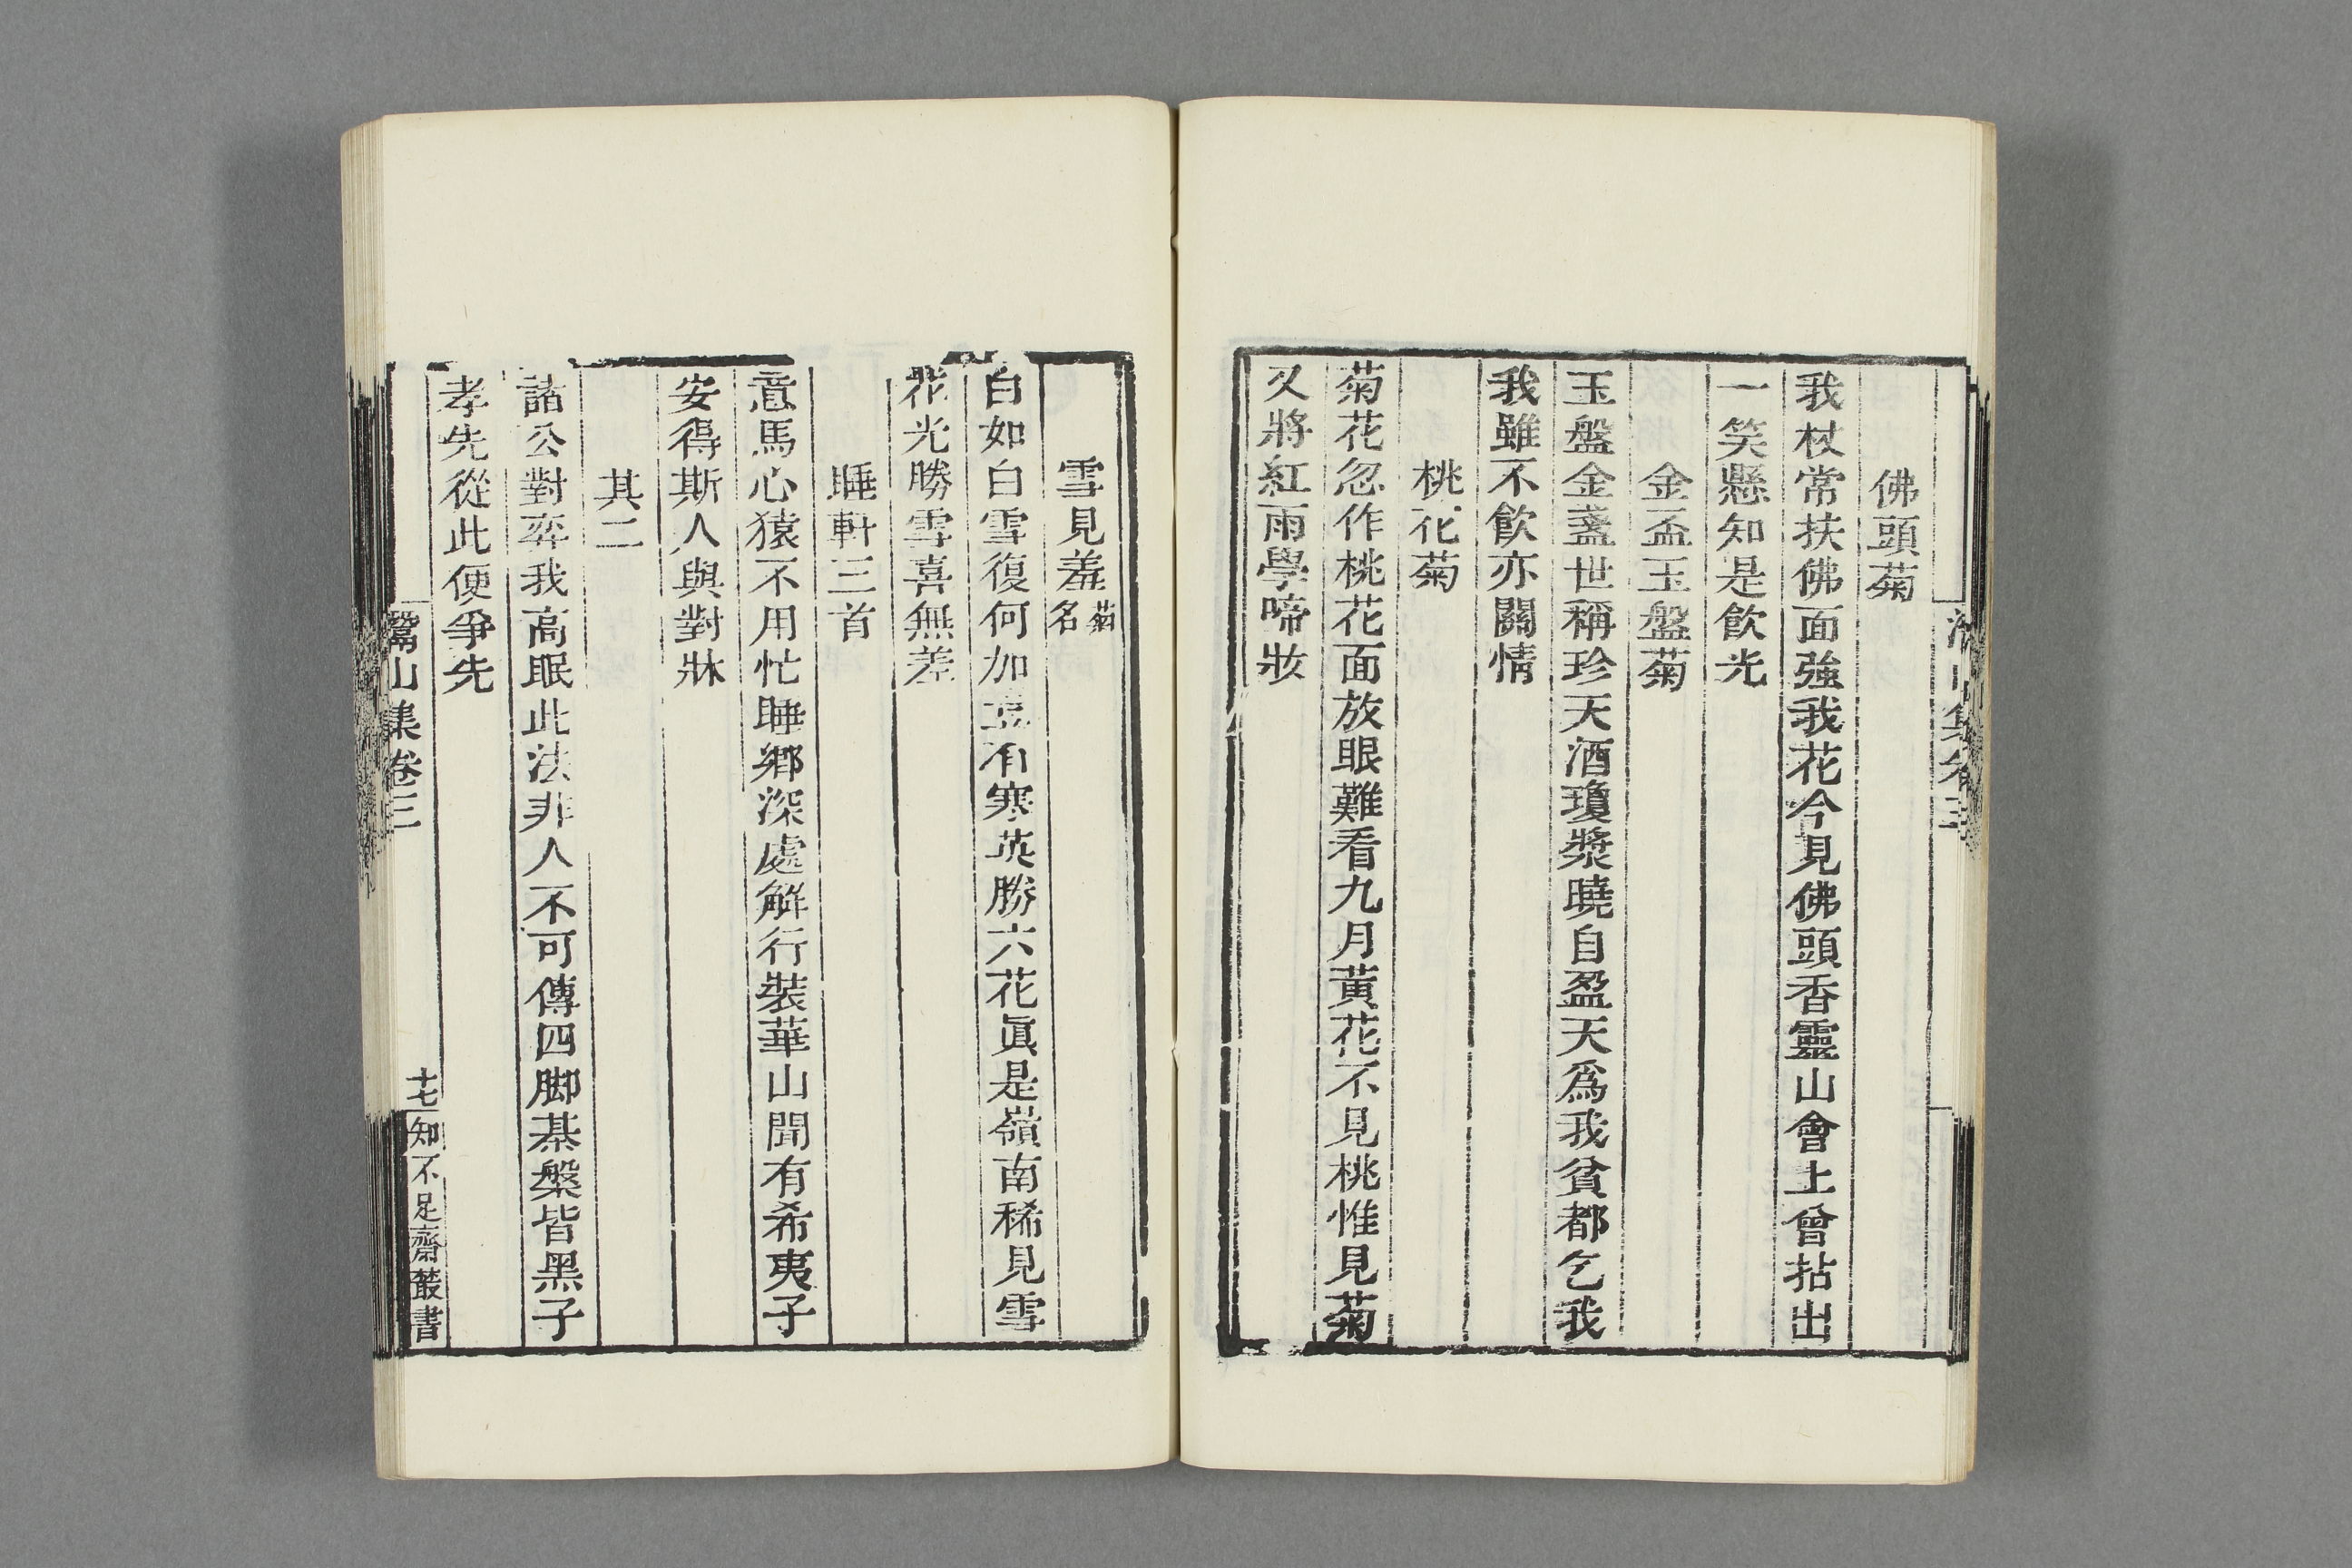 佛頭菊
我杖常扶佛面強我花今見佛頭香靈山會上曾拈出
一笑懸知是飲光
金盃玉盤菊
玉盤金盞世稱珍天酒瓊漿曉自盈天爲我貧都乞我
我雖不飲亦關情
桃花菊
菊花忽作桃花面放眼難看九月黃花不見桃惟見菊
又將紅雨學啼妝
雪見羞菊名
白如白雪復何加豈有寒英勝六花眞是嶺南稀見雪
花光勝雪喜無差
睡軒三首
意馬心猿不用忙睡鄉深處解行裝華山聞有希夷子
安得斯人與對牀
其二
諸公對弈我高眠此法非人不可傳四脚棊槃皆黑子
孝先從此便爭先
山集卷三
十七
知不足齋叢書